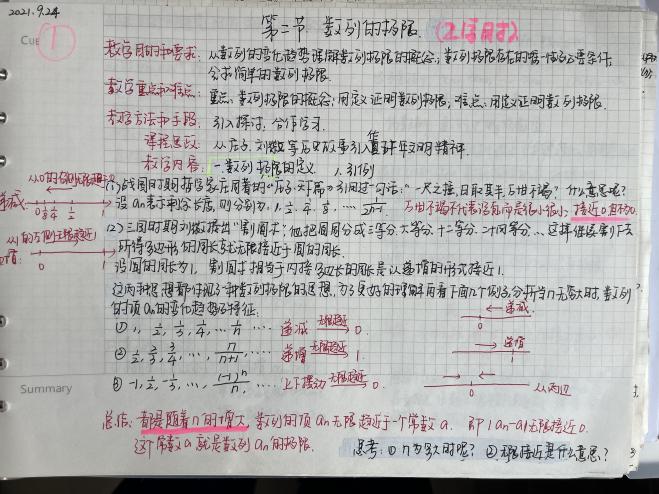 2021.9.24
Cue
①
第二节 数列的极限 (2课时)
教学目的和要求: 从数列的变化趋势理解数列极限的概念; 数列极限存在的唯一性的必要条件;
会求简单的数列极限.
教学重点和难点: 重点: 数列极限的概念; 用定义证明数列极限; 难点: 用定义证明数列极限.
教学方法和手段: 引入探讨, 合作学习.
课程思政: 从庄子, 刘徽等历史故事引入, 文明精神.
教学内容: 一. 数列极限的定义 1. 引例
(1) 战国时期哲学家庄周著的"庄子·天下篇"引用过一句话: "一尺之棰, 日取其半, 万世不竭"? 什么意思呢?
设 an 表示剩余长度, 则分别为: 1, 1/2, 1/4, 1/8, … 1/2^(n-1) 万世不竭不代表没有而是很小很小, 接近0且不为0.
(2) 三国时期数学家刘徽提出"割圆术": 他把圆周分成三等分, 六等分, 十二等分, 二十四等分, … 这样继续割下去
所得多边形的周长就无限接近于圆的周长.
设圆的周长为1, 割圆术相当于内接多边形的周长是以递增的形式接近1.
这两种思想都体现了一种数列极限的思想, 为了更好的理解再看下面几个例子, 分析当n无穷大时, 数列
的项 an 的变化趋势及特征:
① 1, 1/2, 1/3, 1/4, … 1/n … 递减 无限趋近 0.
② 1/2, 2/3, 3/4, … n/(n+1), … 递增 无限趋近 1.
③ -1, 1/2, -1/3, …, (-1)^n/n, … 上下摆动 无限趋近 0.
递减
0
递增
1
0
从两边
递减
0 1/8 1/4 1/2 1
递增
0 1
Summary
总结: 都是随着n的增大, 数列的项 an 无限趋近于一个常数 a. 即 |an-a| 无限接近 0.
这个常数 a 就是数列 an 的极限.
思考: ① n 为多大时呢? ② 无限接近是什么意思?